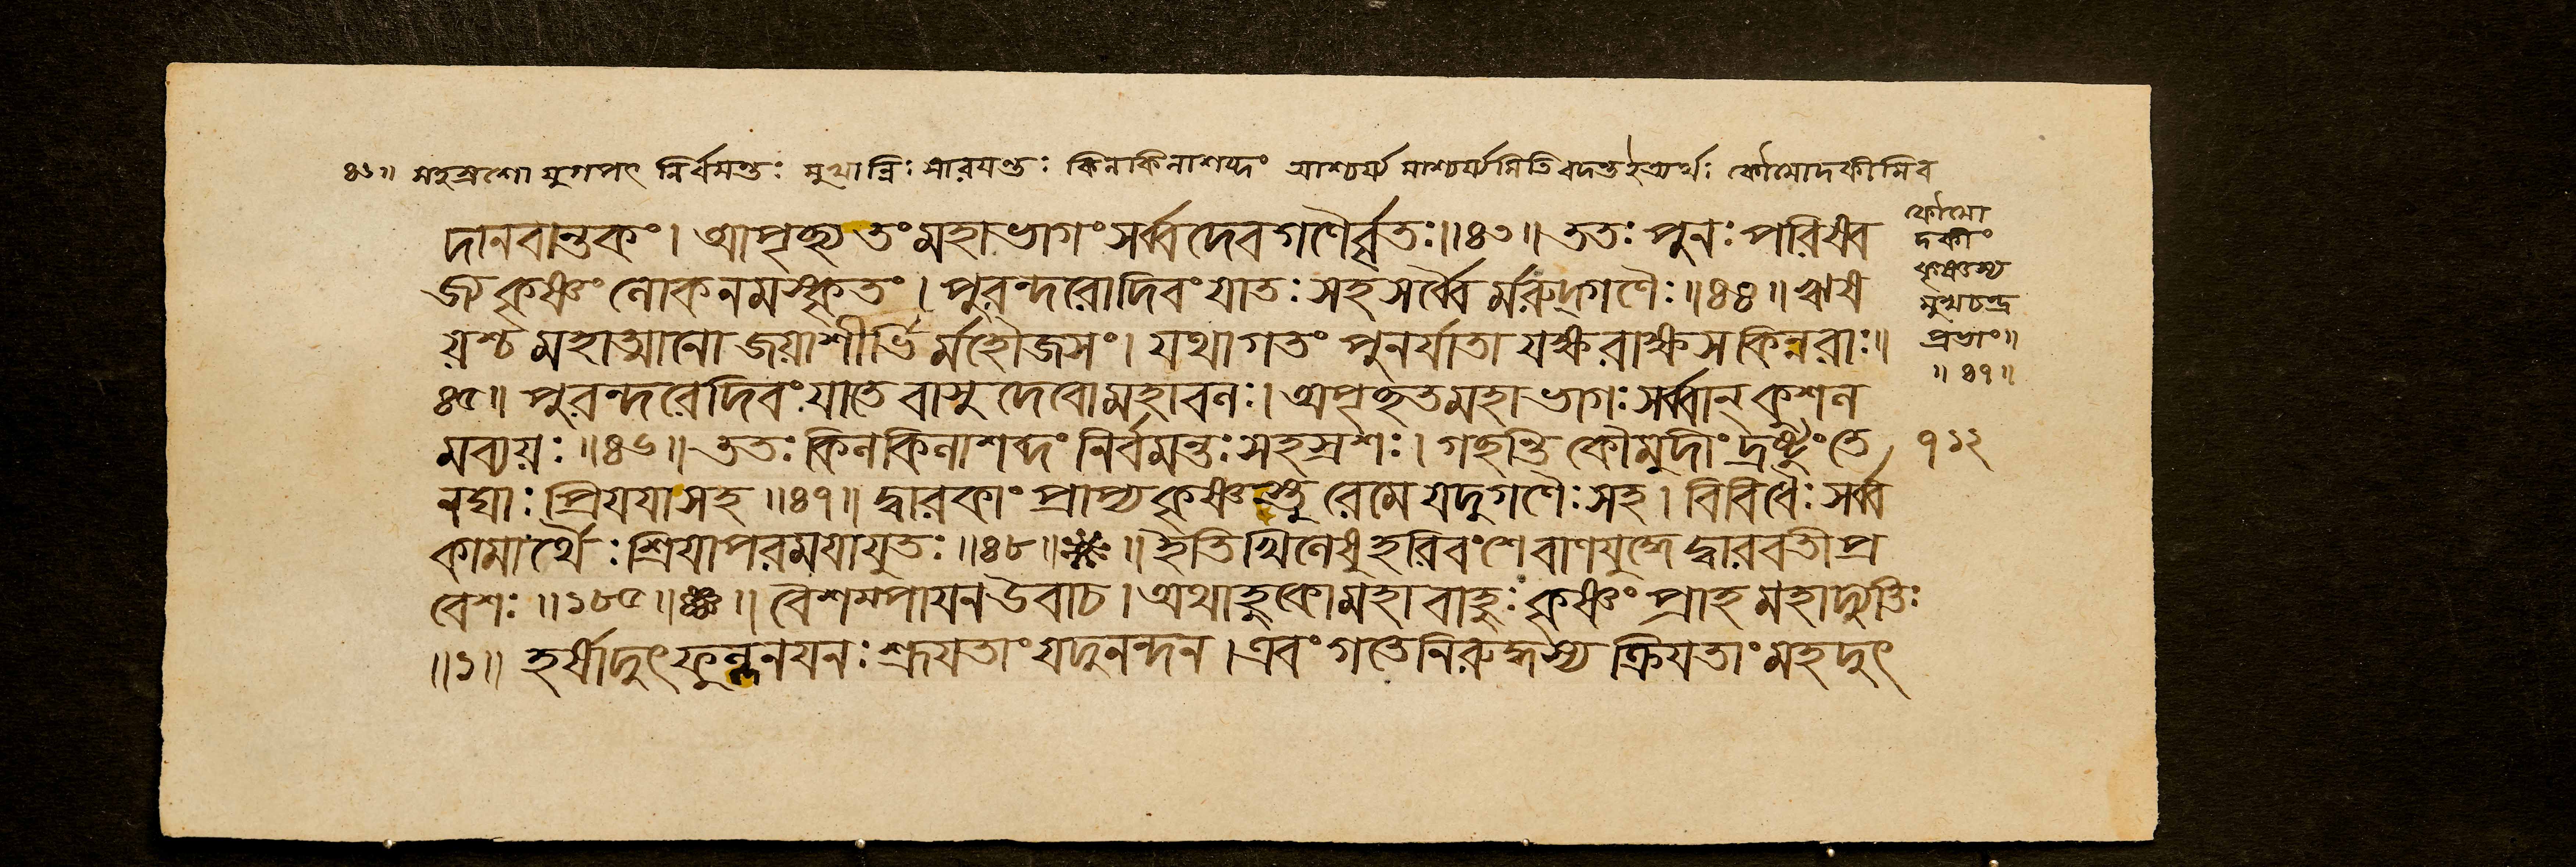 ৪৬॥ সহস্রশো যুগপৎ নির্বমন্তঃ মুখান্নিঃসারযন্তঃ কিলকিলাশব্দং আশ্চর্য্য মাশ্চর্য্যমিতি বদন্তইঅর্থঃ কৌমোদকীমিব
দানবান্তকং। আপৃচ্ছ্য তং মহাভাগং সর্ব্বদেবগণৈর্বৃতঃ॥৪৩॥ ততঃ পুনঃ পরিষ্ব
জ্য কৃষ্ণং লোকনমস্কৃতং। পুরন্দরোদিবং যাতঃ সহ সর্ব্বৈর্মরুদ্গণৈঃ॥৪৪॥ ঋষ
য়শ্চ মহাত্মানো জয়াশীর্ভির্মহৌজসং। যথাগতং পুনর্যাতা যক্ষরাক্ষসকিন্নরাঃ॥
৪৫॥ পুরন্দরেদিবং যাতে বাসুদেবোমহাবলঃ। অপৃচ্ছতমহাভাগঃ সর্ব্বান্ কুশল
মব্যয়ঃ॥৪৬॥ ততঃ কিলকিলাশব্দং নির্বমন্তঃ সহস্রশঃ। গচ্ছন্তি কৌমুদীং দ্রষ্টুং তে
নঘাঃ প্রিযযাসহ॥৪৭॥ দ্বারকাং প্রাপ্য কৃষ্ণস্তু রেমে যদুগণৈঃ সহ। বিবিধৈঃ সর্ব্ব
কামার্থৈঃ শ্রিযাপরমযাযুতঃ॥৪৮॥ ॥ ইতি খিলেষু হরিবংশে বাণযুদ্ধে দ্বারবতীপ্র
বেশঃ॥১৮৫॥ ॥ বৈশম্পাযনউবাচ। অথাহুকোমহাবাহুঃ কৃষ্ণং প্রাহ মহাদ্যুতিঃ
॥১॥ হর্ষাদুৎফুল্লনযনঃ শ্রূযতাং যদুনন্দন। এবং গতেনিরুদ্ধস্য ক্রিযতাং মহদুৎ
কৌমো
দকীং
কৃষ্ণস্য
মুখচন্দ্র
প্রভাং॥
॥৪৭॥
৭১২